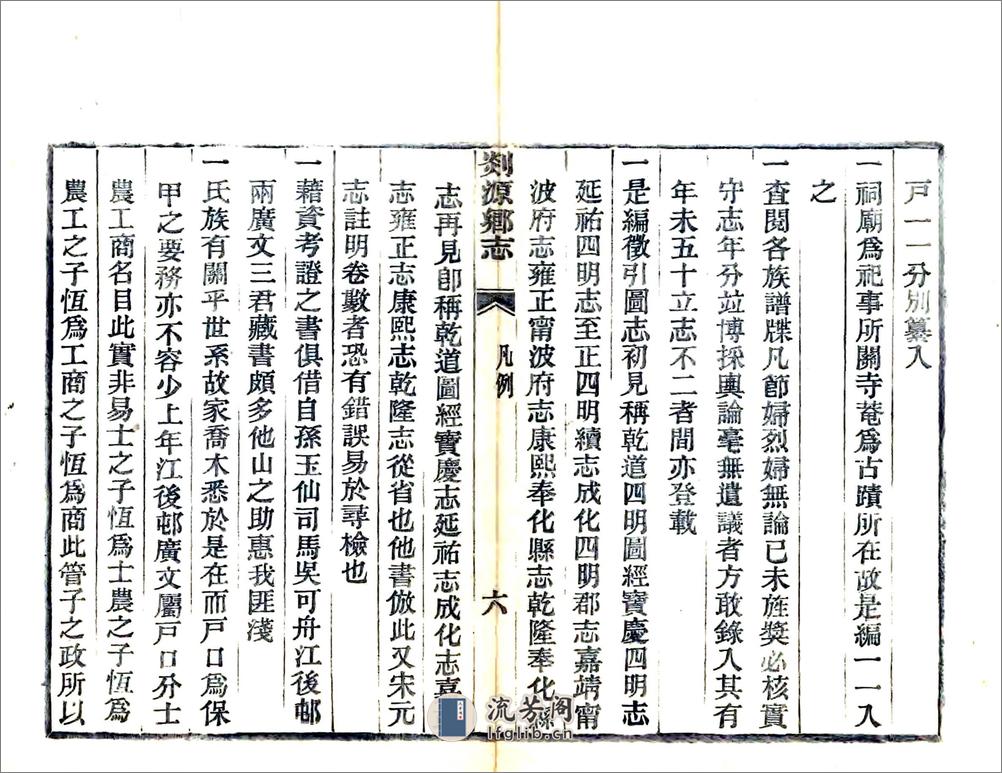 戸一一分別纂入
一祠廟爲祀事所關寺菴爲古蹟所在故是編一一入
之
一査閱各族譜牒凡節婦烈婦無論已未旌獎必核實
守志年分竝博採輿論毫無遺議者方敢錄入其有
年未五十立志不二者間亦登載
一是編徵引圖志初見稱乾道四明圖經寶慶四明志
延祐四明志至正四明續志成化四明郡志嘉靖甯
波府志雍正甯波府志康熙奉化縣志乾隆奉化縣
剡源鄉志 凡例 六
志再見卽稱乾道圖經寶慶志延祐志成化志嘉
志雍正志康熙志乾隆志從省也他書倣此又宋元
志註明卷數者恐有錯誤易於尋檢也
一藉資考證之書俱借自孫玉仙司馬吳可舟江後邨
兩廣文三君藏書頗多他山之助惠我匪淺
一氏族有關乎世系故家喬木悉於是在而戸口爲保
甲之要務亦不容少上年江後邨廣文屬戸口分士
農工商名目此實非易士之子恆爲士農之子恆爲
農工之子恆爲工商之子恆爲商此管子之政所以
流芳阁
lfglib.cn